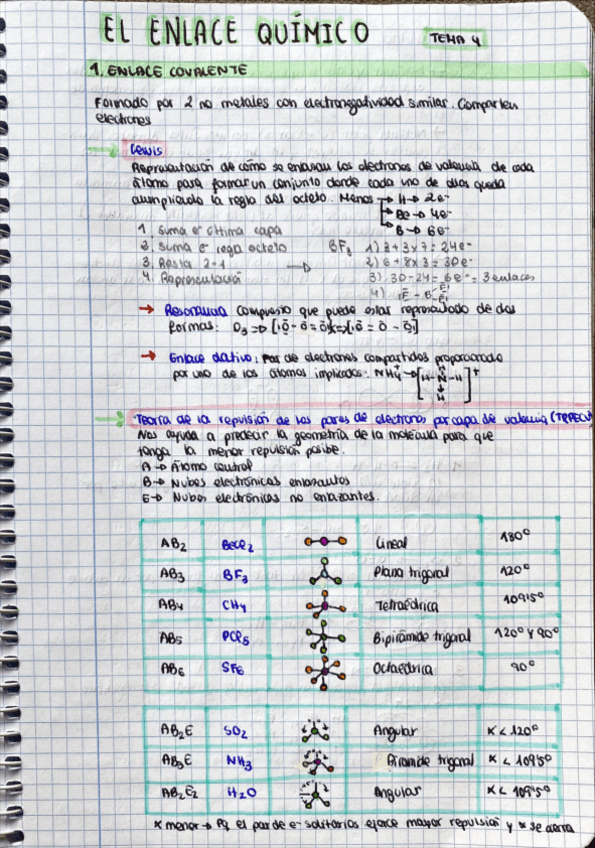 EL ENLACE QUÍMICO TEMA 4
1. ENLACE COVALENTE
Formado por 2 no metales con electronegatividad similar. Comparten
electrones
Lewis
Representación de cómo se enlazan los electrones de valencia de cada
átomo para formar un conjunto donde cada uno de ellos queda
cumpliendo la regla del octeto. Menos → H → 2e⁻
→ Be → 4e⁻
→ B → 6e⁻
1. Suma e⁻ última capa
2. Suma e⁻ regla octeto
3. Resta 2-1
4. Representación
BF₃ 1) 3+3×7= 24e⁻
2) 6+8×3 = 30e⁻
3) 30-24= 6e⁻ = 3 enlaces
4) F - B - F
F
→ Resonancia compuesto que puede estar representado de dos
formas: O₃ => [O-O=O] <=> [O=O-O]
→ Enlace dativo: Par de electrones compartidos proporcionado
por uno de los átomos implicados. NH₄⁺ → [H-N-H]⁺
H
H
Teoría de la repulsión de los pares de electrones por capa de valencia (TRPECV
Nos ayuda a predecir la geometría de la molécula para que
tenga la menor repulsión posible.
A → Átomo central
B → Nubes electrónicas enlazantes
E → Nubes electrónicas no enlazantes.
AB₂ BeCl₂ Lineal 180°
AB₃ BF₃ Plana trigonal 120°
AB₄ CH₄ Tetraédrica 109'5°
AB₅ PCl₅ Bipirámide trigonal 120° y 90°
AB₆ SF₆ Octaédrica 90°
AB₂E SO₂ Angular α < 120°
AB₃E NH₃ Pirámide trigonal α < 109'5°
AB₂E₂ H₂O Angular α < 109'5°
α menor → Pq el par de e⁻ solitarios ejerce mayor repulsión y α se cierra